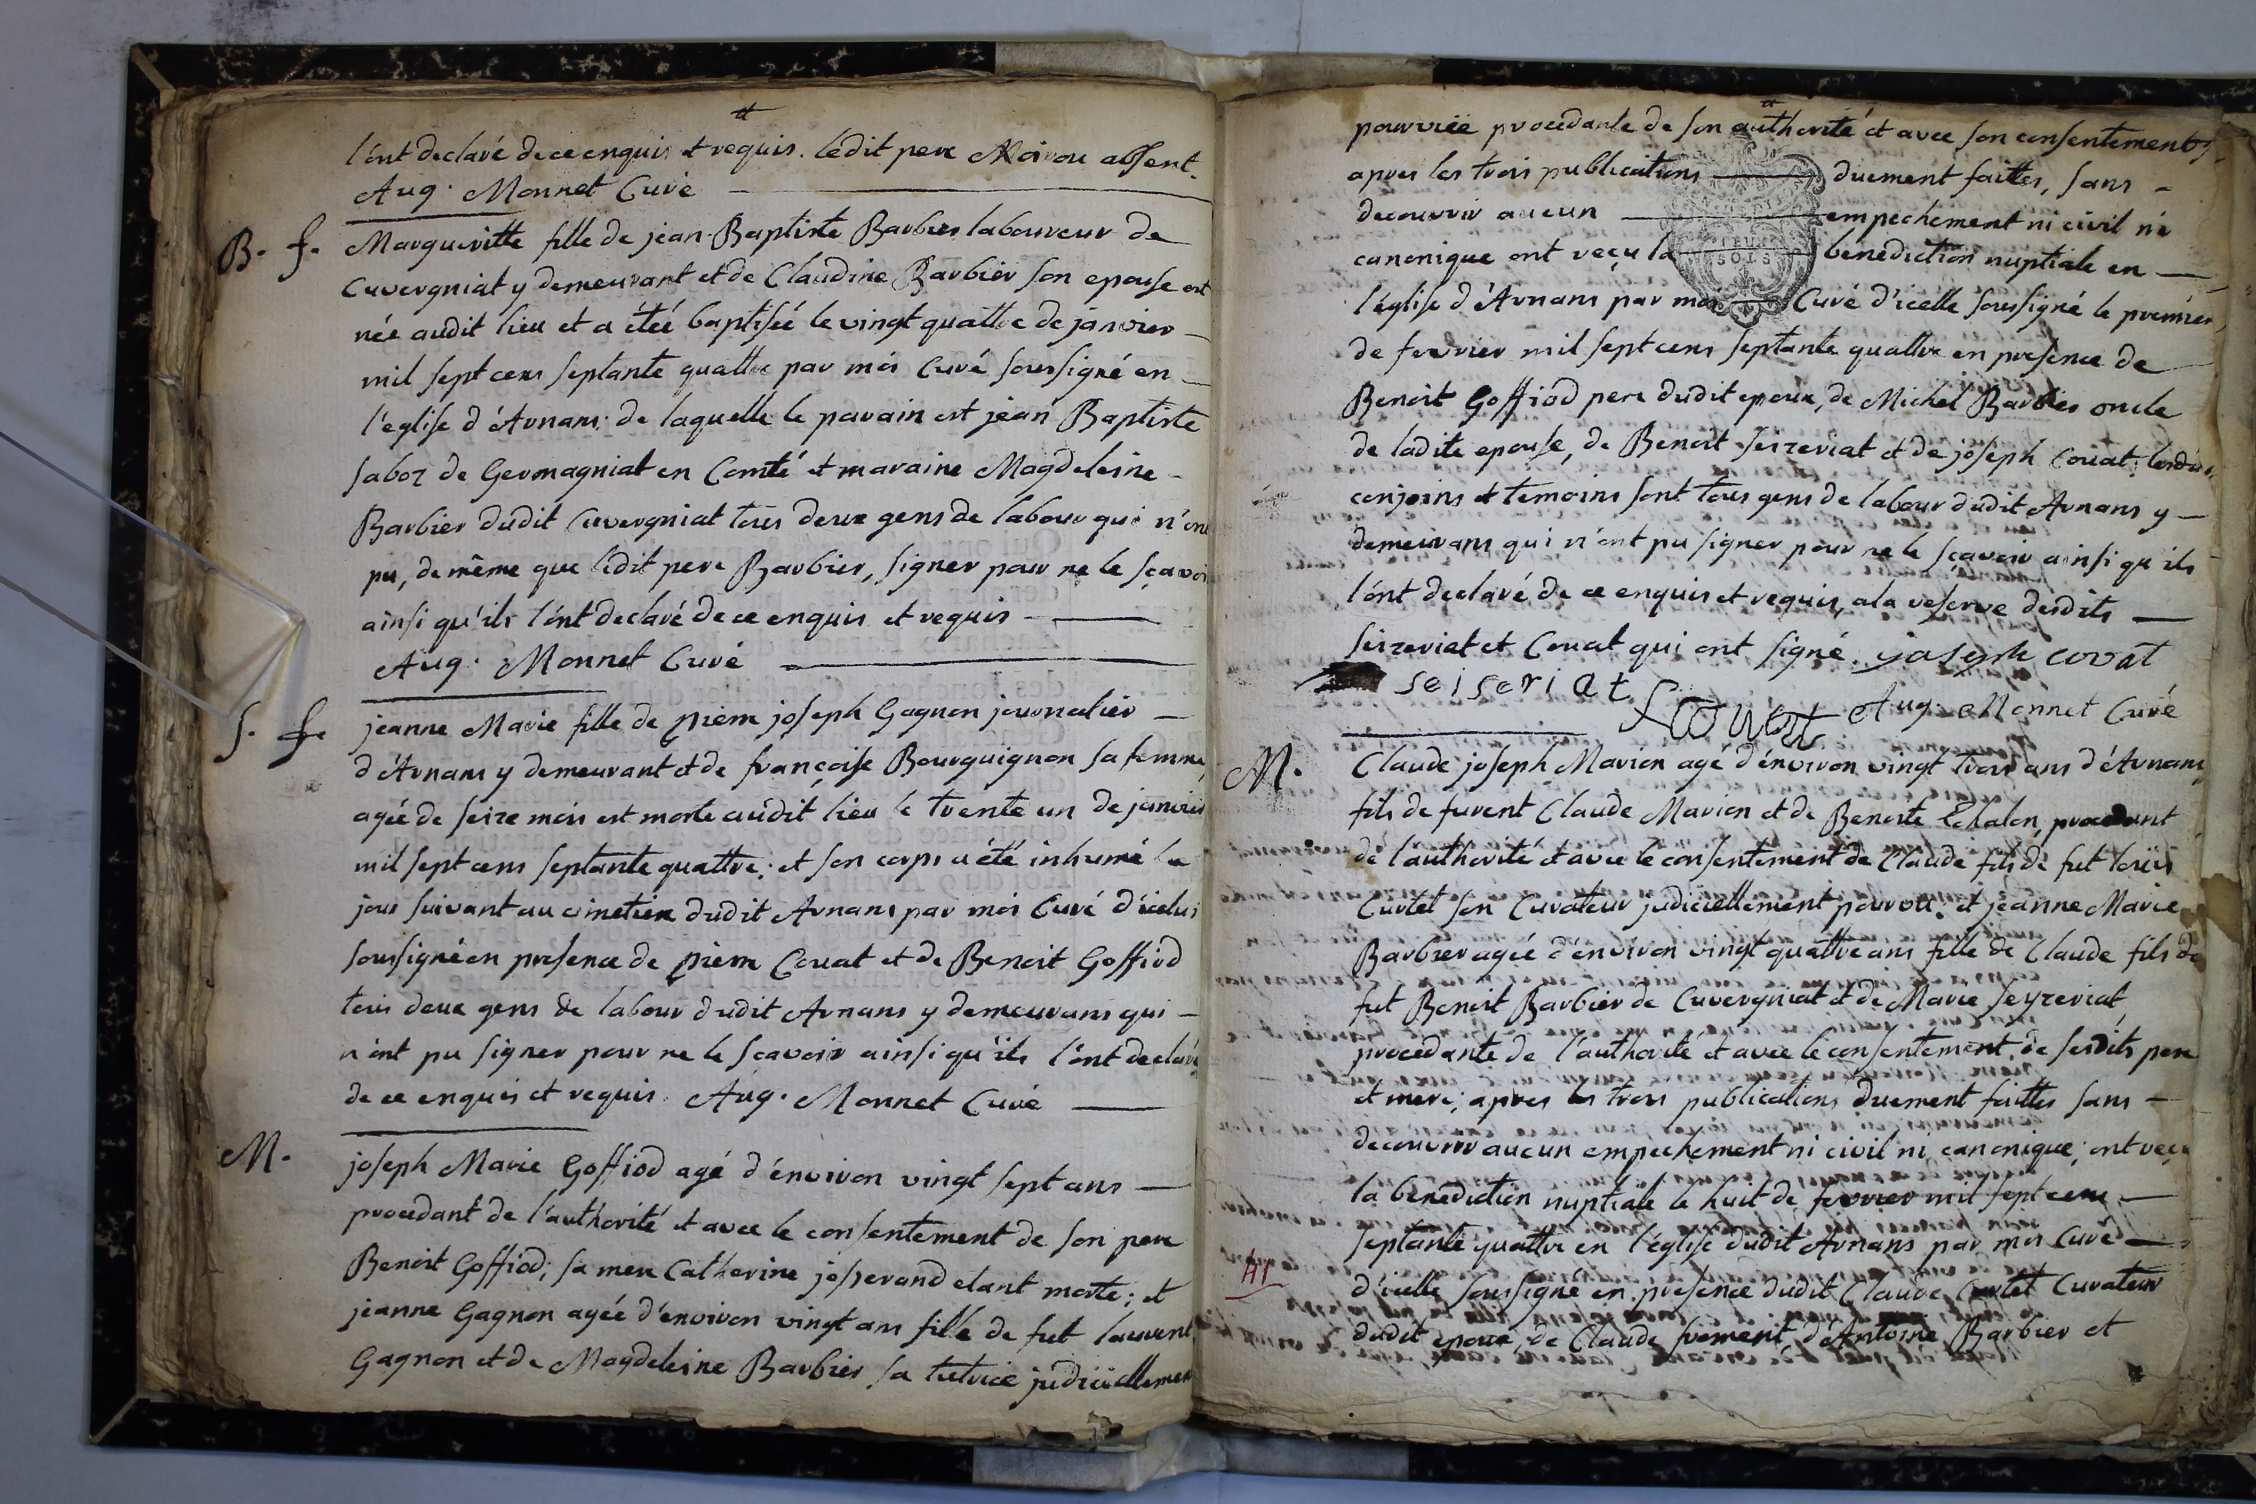 l'ont declaré de ce enquis et requis. ledit pere Moirou absent.
Aug. Monnet Curé
B. f. Margueritte fille de jean-Baptiste Barbier laboureur de
Cuvergniat y demeurant et de Claudine Barbier son epouse est
née audit lieu et a étéé baptiséé le vingt quattre de janvier
mil sept cens septante quattre par moi Curé soussigné en
l'eglise d'Arnans; de laquelle le parain est jean Baptiste
saboz de Germagniat en Comté et maraine Magdeleine
Barbier dudit Cuvergniat tous deux gens de labour qui n'ont
pu, de même que ledit pere Barbier, signer pour ne le sçavoir
ainsi qu'ils l'ont declaré de ce enquis et requis
Aug. Monnet Curé
S. f. jeanne Marie fille de pierre joseph Gagnon journalier
d'Arnans y demeurant et de françoise Bourguignon sa femme,
agéé de seize mois est morte audit lieu le trente un de janvier
mil sept cens septante quattre; et son corps a été inhumé le
jour suivant au cimetiere dudit Arnans par moi Curé d'icelui
soussigné en presence de pierre Couat et de Benoit Goffiod
tous deux gens de labour dudit Arnans y demeurans qui
n'ont pu signer pour ne le sçavoir ainsi qu'ils l'ont declaré
de ce enquis et requis. Aug. Monnet Curé
M. joseph Marie Goffiod agé d'environ vingt sept ans
procedant de l'authorité et avec le consentement de son pere
Benoit Goffiod; sa mere Catherine josserand etant morte; et
jeanne Gagnon agéé d'environ vingt ans fille de fut laurent
Gagnon et de Magdeleine Barbier sa tutrice judiciellement
pourvüe procedante de son authorité et avec son consentement;
apres les trois publications duement faittes, sans
decouvrir aucun empechement ni civil ni
canonique ont reçu la bénédiction nuptiale en
DEUX
SOLS
l'église d'Arnans par moi Curé d'icelle soussigné le premier
de fevrier mil sept cens septante quattre en presence de
Benoit Goffiod pere dudit epoux, de Michel Barbier oncle
de ladite epouse, de Benoit seizeriat et de joseph Couat; lesdits
conjoins et temoins sont tous gens de labour dudit Arnans y
demeurans qui n'ont pu signer pour ne le sçavoir ainsi qu'ils
l'ont declaré de ce enquis et requis, a la reserve desdits
seizeriat et Couat qui ont signé. joseph covat
seiseriat Couat Aug. Monnet Curé
M. Claude joseph Marion agé d'environ vingt trois ans d'Arnans,
fils de furent Claude Marion et de Benoite Echalon, procedant
de l'authorité et avec le consentement de Claude fils de fut loüis
Curtet son Curateur judiciellement pourvu; et jeanne Marie
Barbier agéé d'environ vingt quattre ans fille de Claude fils de
fut Benoit Barbier de Cuvergniat et de Marie seyzeriat,
procedante de l'authorité et avec le consentement de sesdits pere
et mere; apres les trois publications duement faittes sans
decouvrir aucun empechement ni civil ni canonique, ont reçu
la benediction nuptiale le huit de fevrier mil sept cens
septante quattre en l'église dudit Arnans par moi Curé
d'icelle soussigné en presence dudit Claude Curtet Curateur
dudit epoux, de Claude froment, d'Antoine Barbier et